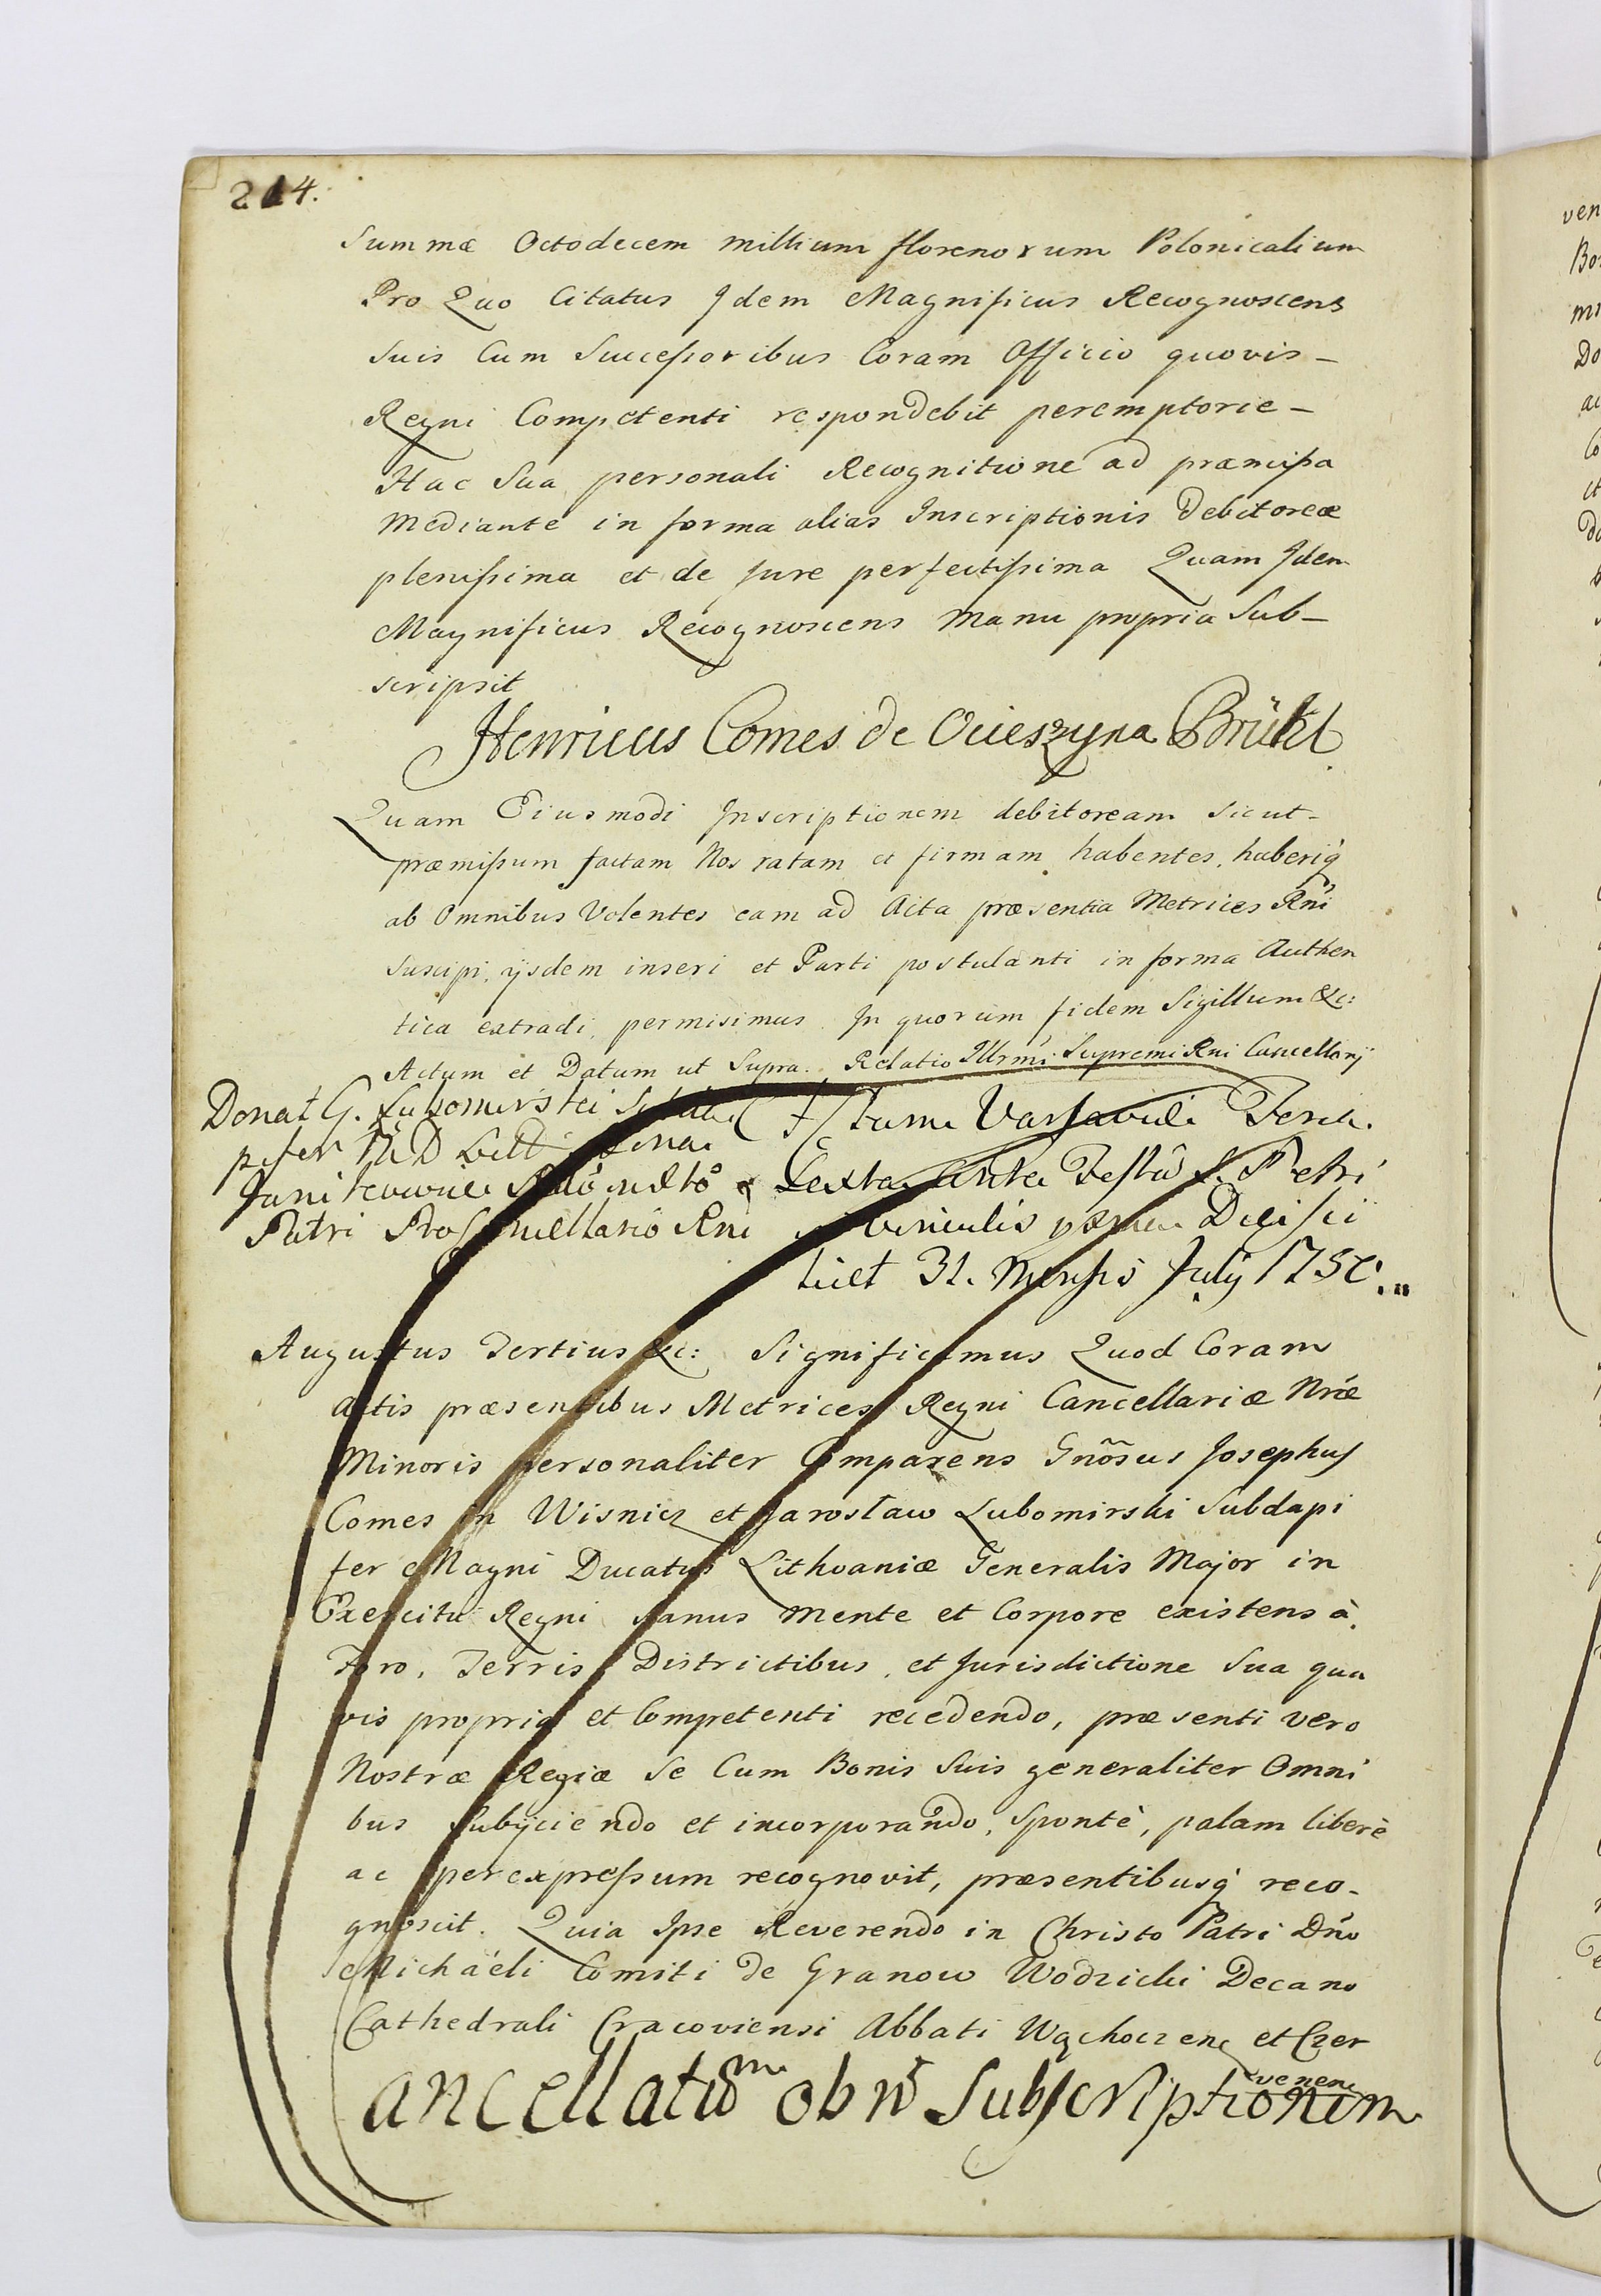 214.
Summæ Octodecem millium florenorum Polonicalium
Pro Quo Citatus Idem Magnificus Recognoscens
Suis Cum Successoribus Coram Officio quovis –
Regni Competenti respondebit peremptorie –
Hac Sua personali Recognitione ad præmissa
Mediante in forma alias Inscriptionis Debitoreæ
plenissima et de Jure perfectissima Quam Idem
Magnificus Recognoscens Manu propria Sub–
scripsit
Henricus Comes de Ocieszyna Brühl
Quam Eiusmodi Inscriptionem debitoream Sicut–
præmissum factam Nos ratam et firmam habentes, haberiq
ab Omnibus Volentes eam ad Acta præsentia Metrices Rni
Suscipi, ijsdem inseri et Parti postulanti in forma Authen
tica extradi, permisimus. In quorum fidem Sigillum &c:
Actum et Datum ut Supra. Relatio Illrmi Supremi Rni Cancellarij
Donat G. Lubomirski
Patri Rni
Actum Varsaviæ Feria
Sexta Ante Festu S. Petri
Vinculis
31. Mensis July
Augustus Tertius &c: Significamus Quod Coram
Actis præsentibus Metrices Regni Cancellariæ Nræ
Minoris personaliter Comparens Gnosus Josephus
Comes in Wisnicz et Jarosław Lubomirski Subdapi
fer Magni Ducatus Lithvaniæ Generalis Major in
Exercitu Regni Sanus Mente et Corpore existens à
Foro, Terris Districtibus, et Jurisdictione Sua qua
vis propria et Competenti recedendo, præsenti vero
Nostræ Regiæ Se Cum Bonis Suis generaliter Omni
bus Subijciendo et incorporando, Spontè, palam liberè
ac per expressum recognovit, præsentibusq reco–
gnoscit. Quia Ipse Reverendo in Christo Patri Dno
Michaéli Comiti de Granow Wodzicki Decano
Cathedrali Cracoviensi Abbati Wąchoczenc et Czer
venenc
ancellatum ob Subscriptionem